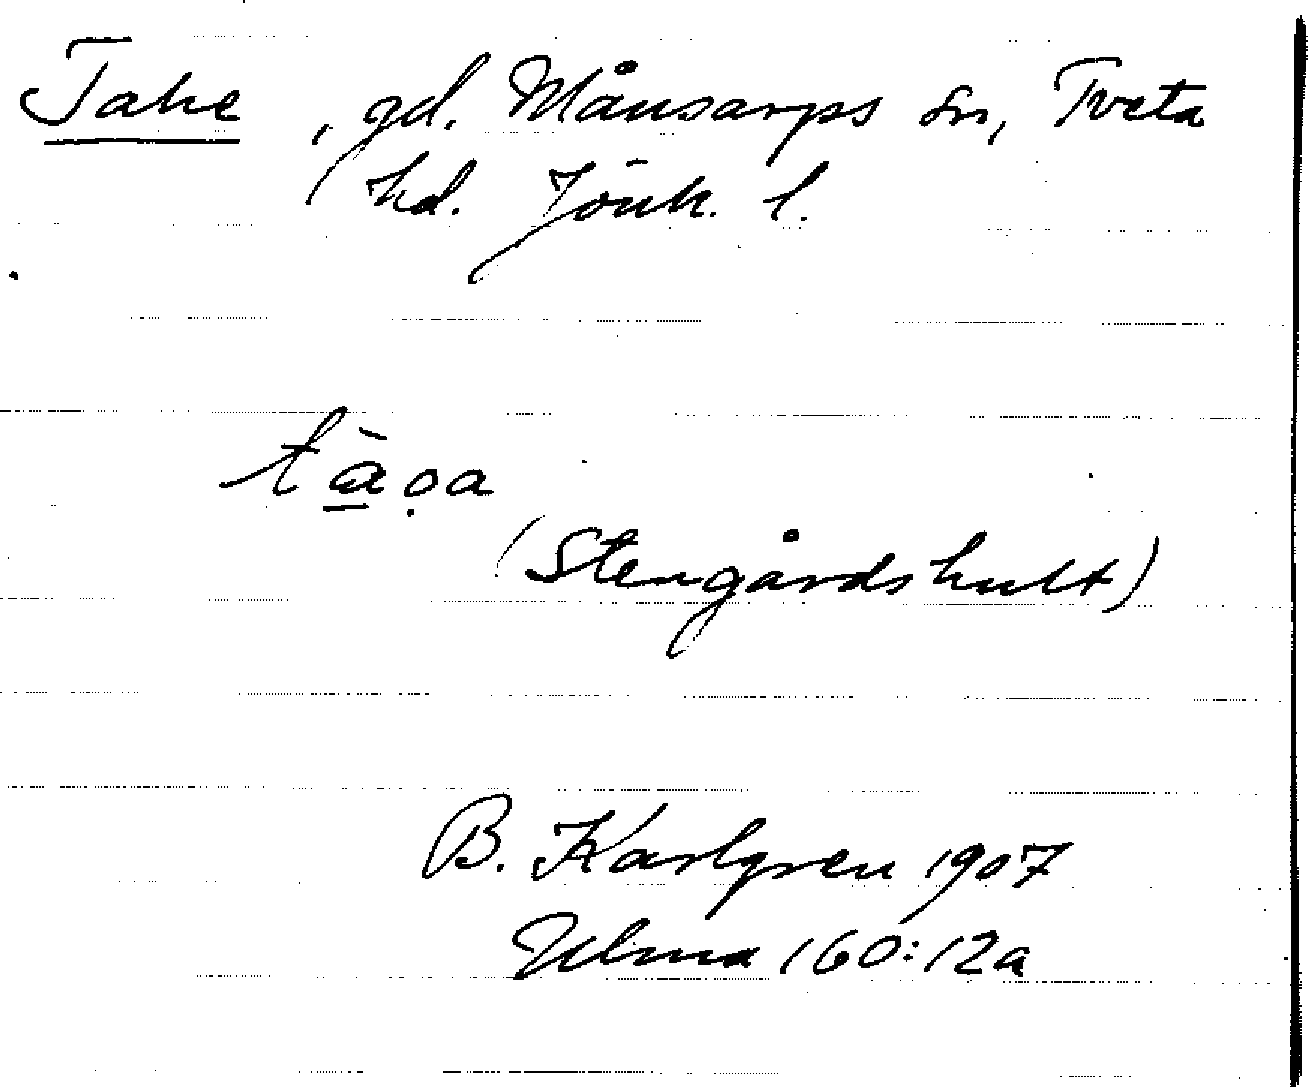 Tahe, gd. Månsarps sn, Tveta
hd. Jönk. l.
tàọa
(Stengårdshult)
B. Karlgren 1907
Ulma 160:12a